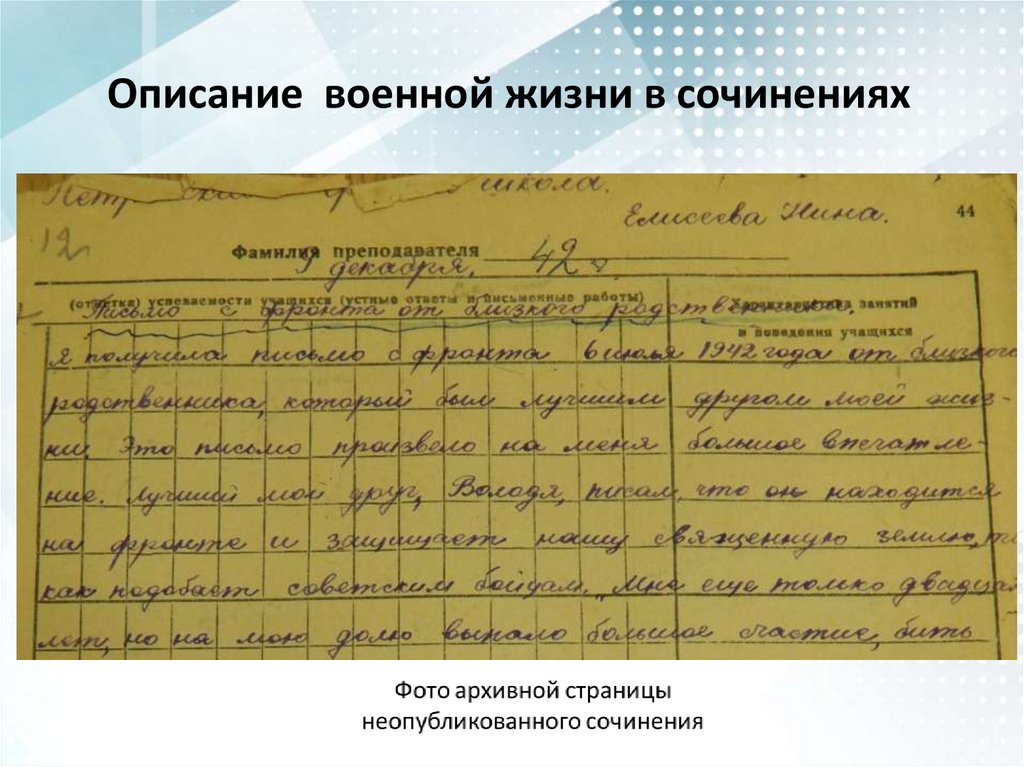 Описание военной жизни в сочинениях
школа.
Елисеева Нина.
44
12
Фамилия преподавателя
9 декабря. 42 г.
(отметка) успеваемости учащихся (устные ответы и письменные работы)
Характеристика занятий
и поведения учащихся
Письмо с фронта от близкого родственника.
Я получила письмо с фронта 6 июля 1942 года от близкого
родственника, который был лучшим другом моей жиз-
ни. Это письмо произвело на меня большое впечатле-
ние. Лучший мой друг, Володя, писал, что он находится
на фронте и защищает нашу священную землю,
как подобает советским бойцам. „Мне еще только двадца
лет, но на мою долю выпало большое счастие, бить
Фото архивной страницы
неопубликованного сочинения